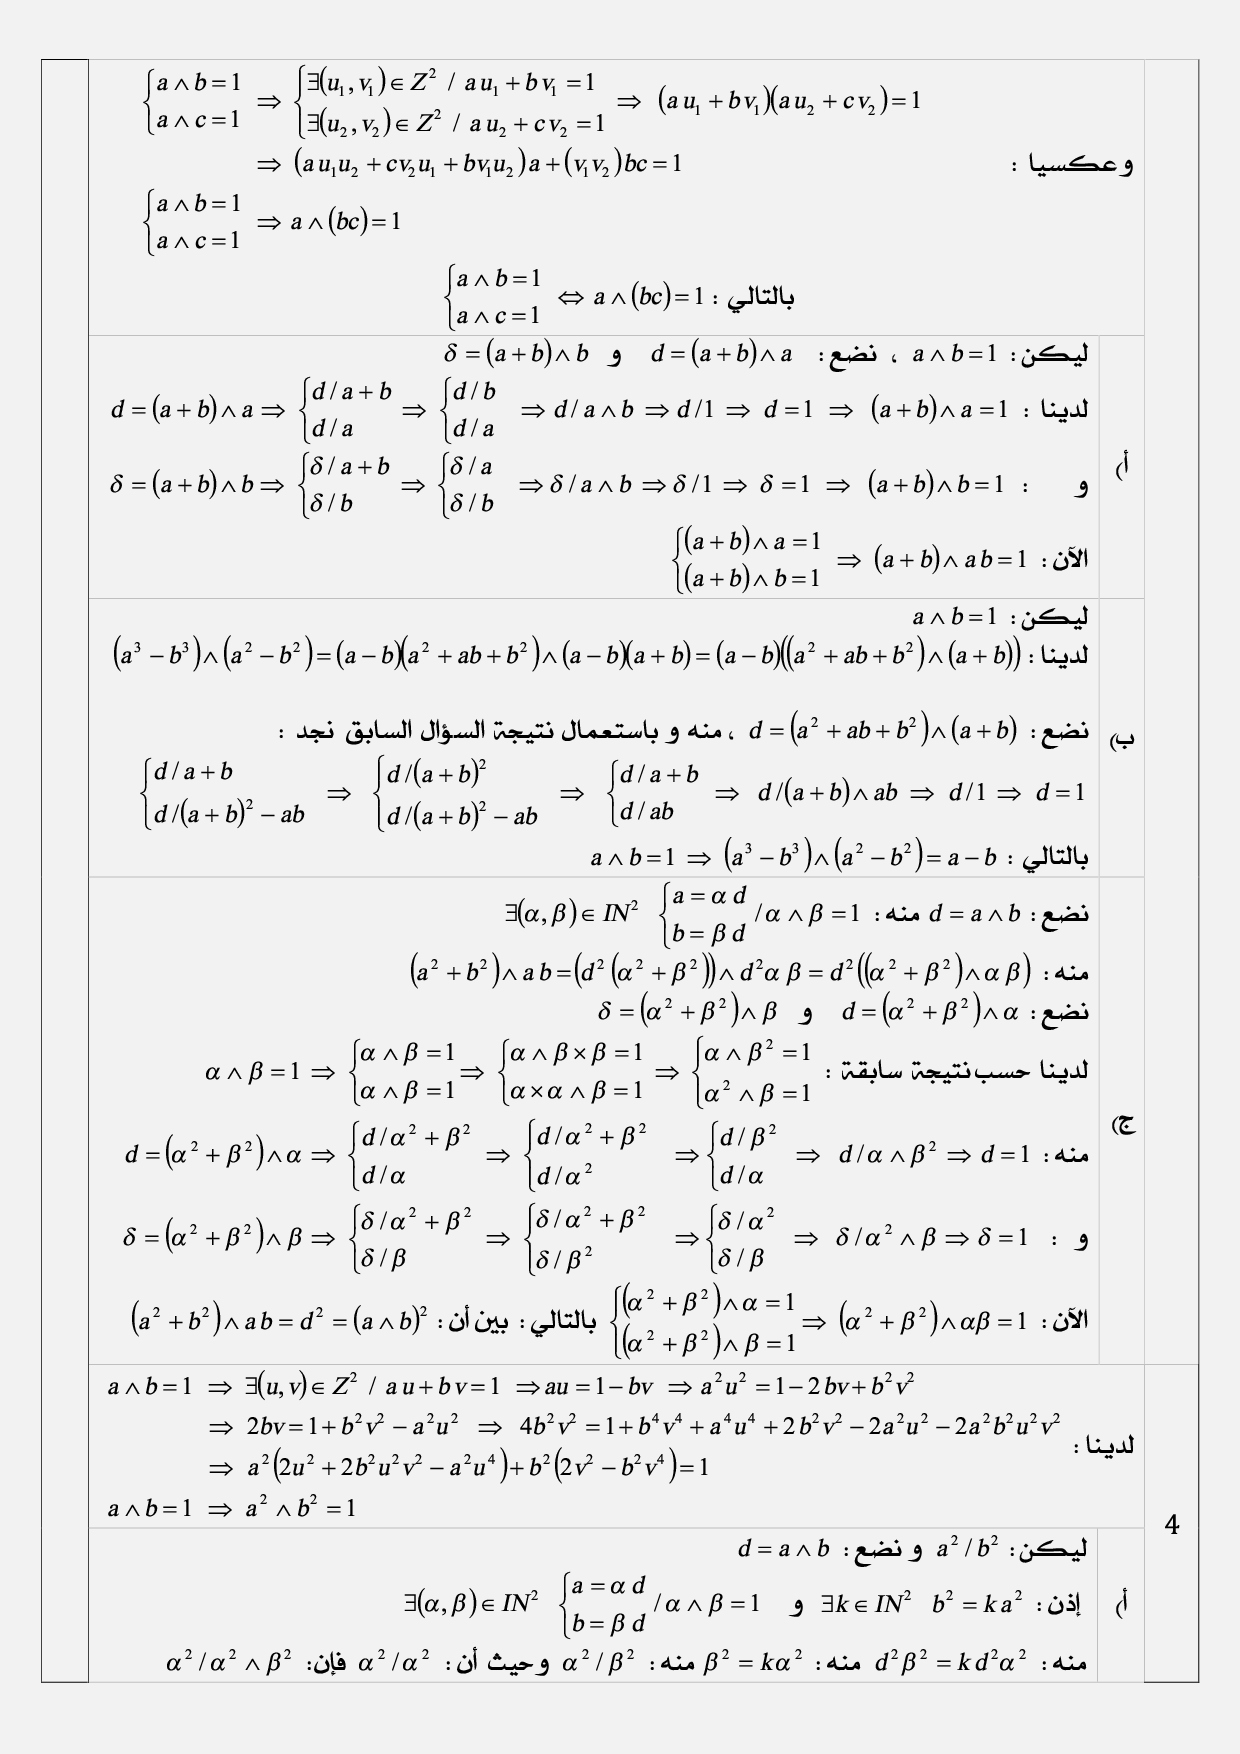 وعكسيا : { a ∧ b = 1 ; a ∧ c = 1 ⇒ { ∃(u₁, v₁) ∈ Z² / a u₁ + b v₁ = 1 ; ∃(u₂, v₂) ∈ Z² / a u₂ + c v₂ = 1 ⇒ (a u₁ + b v₁)(a u₂ + c v₂) = 1
⇒ (a u₁u₂ + cv₂u₁ + bv₁u₂)a + (v₁v₂)bc = 1
{ a ∧ b = 1 ; a ∧ c = 1 ⇒ a ∧ (bc) = 1
بالتالي : { a ∧ b = 1 ; a ∧ c = 1 ⇔ a ∧ (bc) = 1
أ)
ليكن : a ∧ b = 1 ، نضع : d = (a + b) ∧ a و δ = (a + b) ∧ b
لدينا : d = (a + b) ∧ a ⇒ { d / a + b ; d / a ⇒ { d / b ; d / a ⇒ d / a ∧ b ⇒ d / 1 ⇒ d = 1 ⇒ (a + b) ∧ a = 1
و : δ = (a + b) ∧ b ⇒ { δ / a + b ; δ / b ⇒ { δ / a ; δ / b ⇒ δ / a ∧ b ⇒ δ / 1 ⇒ δ = 1 ⇒ (a + b) ∧ b = 1
الآن : { (a + b) ∧ a = 1 ; (a + b) ∧ b = 1 ⇒ (a + b) ∧ a b = 1
ب)
ليكن : a ∧ b = 1
لدينا : (a³ − b³) ∧ (a² − b²) = (a − b)(a² + ab + b²) ∧ (a − b)(a + b) = (a − b)((a² + ab + b²) ∧ (a + b))
نضع : d = (a² + ab + b²) ∧ (a + b) ، منه و باستعمال نتيجة السؤال السابق نجد :
{ d / a + b ; d / (a + b)² − ab ⇒ { d / (a + b)² ; d / (a + b)² − ab ⇒ { d / a + b ; d / ab ⇒ d / (a + b) ∧ ab ⇒ d / 1 ⇒ d = 1
بالتالي : a ∧ b = 1 ⇒ (a³ − b³) ∧ (a² − b²) = a − b
ج)
نضع : d = a ∧ b منه : ∃(α, β) ∈ IN² { a = α d ; b = β d / α ∧ β = 1
منه : (a² + b²) ∧ a b = (d² (α² + β²)) ∧ d²α β = d² ((α² + β²) ∧ α β)
نضع : d = (α² + β²) ∧ α و δ = (α² + β²) ∧ β
لدينا حسب نتيجة سابقة : α ∧ β = 1 ⇒ { α ∧ β = 1 ; α ∧ β = 1 ⇒ { α ∧ β × β = 1 ; α × α ∧ β = 1 ⇒ { α ∧ β² = 1 ; α² ∧ β = 1
منه : d = (α² + β²) ∧ α ⇒ { d / α² + β² ; d / α ⇒ { d / α² + β² ; d / α² ⇒ { d / β² ; d / α ⇒ d / α ∧ β² ⇒ d = 1
و : δ = (α² + β²) ∧ β ⇒ { δ / α² + β² ; δ / β ⇒ { δ / α² + β² ; δ / β² ⇒ { δ / α² ; δ / β ⇒ δ / α² ∧ β ⇒ δ = 1
الآن : { (α² + β²) ∧ α = 1 ; (α² + β²) ∧ β = 1 ⇒ (α² + β²) ∧ αβ = 1 بالتالي : بين أن : (a² + b²) ∧ a b = d² = (a ∧ b)²
4
لدينا : a ∧ b = 1 ⇒ ∃(u, v) ∈ Z² / a u + b v = 1 ⇒ au = 1 − bv ⇒ a²u² = 1 − 2bv + b²v²
⇒ 2bv = 1 + b²v² − a²u² ⇒ 4b²v² = 1 + b⁴v⁴ + a⁴u⁴ + 2b²v² − 2a²u² − 2a²b²u²v²
⇒ a²(2u² + 2b²u²v² − a²u⁴) + b²(2v² − b²v⁴) = 1
a ∧ b = 1 ⇒ a² ∧ b² = 1
أ)
ليكن : a² / b² و نضع : d = a ∧ b
إذن : ∃k ∈ IN² b² = k a² و ∃(α, β) ∈ IN² { a = α d ; b = β d / α ∧ β = 1
منه : d²β² = k d²α² منه : β² = kα² منه : α² / β² وحيث أن : α² / α² فإن : α² / α² ∧ β²